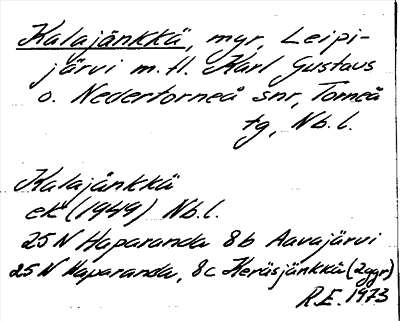 Kalajänkkä, myr, Leipi-
järvi m.fl. Karl Gustavs
o. Nedertorneå snr, Torneå
tg, Nb.l.
Kalajänkkä
ek (1949) Nb.l.
25 N Haparanda 8b Aavajärvi
25 N Haparanda, 8c Keräsjänkkä (2ggr)
R.E. 1973